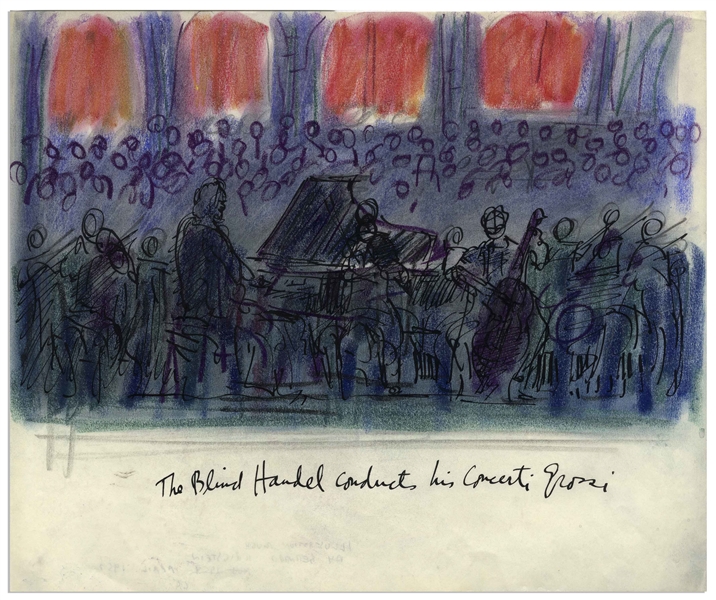 The Blind Handel conducts his Concerti Grossi